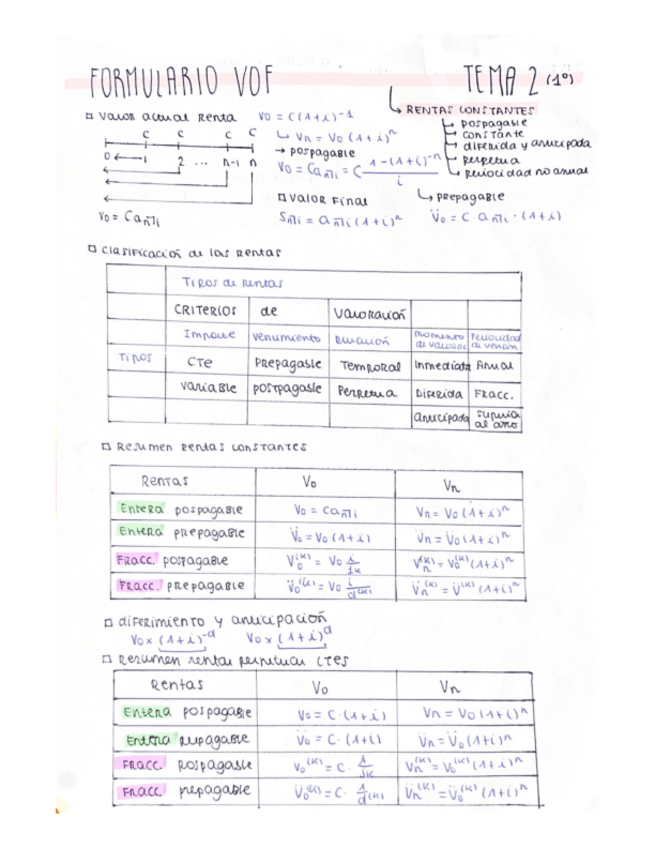 FORMULARIO VOF TEMA 2 (1º)
RENTAS CONSTANTES
pospagable
constante
diferida y anticipada
perpetua
periocidad no anual
□ Valor actual Renta V0 = C(1+i)⁻¹
Vn = V0 (1+i)ⁿ
→ pospagable
V0 = C a n̅|i = C (1-(1+i)⁻ⁿ)/i
C C C C
0 1 2 ... n-1 n
V0 = C a n̅|i
□ Valor Final
S n̅|i = a n̅|i (1+i)ⁿ
prepagable
V̈0 = C · a n̅|i · (1+i)
□ Clasificación de las Rentas
Tipos de Rentas
CRITERIOS de Valoración
Importe Vencimiento Duración momento de valorac Periocidad de vencim
Tipos CTE Prepagable Temporal Inmediata Anual
Variable postpagable Perpetua Diferida Fracc.
Anticipada superior al año
□ Resumen Rentas constantes
Rentas V0 Vn
Entera pospagable V0 = C a n̅|i Vn = V0 (1+i)ⁿ
Entera prepagable V̈0 = V0 (1+i) V̈n = V̈0 (1+i)ⁿ
Fracc. pospagable V0⁽ᴷ⁾ = V0 i/jk Vn⁽ᴷ⁾ = V0⁽ᴷ⁾ (1+i)ⁿ
Fracc. prepagable V̈0⁽ᴷ⁾ = V0 i/d⁽ᴷ⁾ V̈n⁽ᴷ⁾ = V̈⁽ᴷ⁾ (1+i)ⁿ
□ diferimiento y anticipación
V0 x (1+i)⁻ᵈ V0 x (1+i)ᵈ
□ Resumen rentas perpetuas CTES
Rentas V0 Vn
Entera pospagable V0 = C · (1+i) Vn = V0 (1+i)ⁿ
Entera V̈0 = C · (1+i) V̈n = V̈0 (1+i)ⁿ
Fracc. pospagable V0⁽ᴷ⁾ = C · 1/jk Vn⁽ᴷ⁾ = V0⁽ᴷ⁾ (1+i)ⁿ
Fracc prepagable V̈0⁽ᴷ⁾ = C · 1/d⁽ᴷ⁾ V̈n⁽ᴷ⁾ = V̈0⁽ᴷ⁾ (1+i)ⁿ